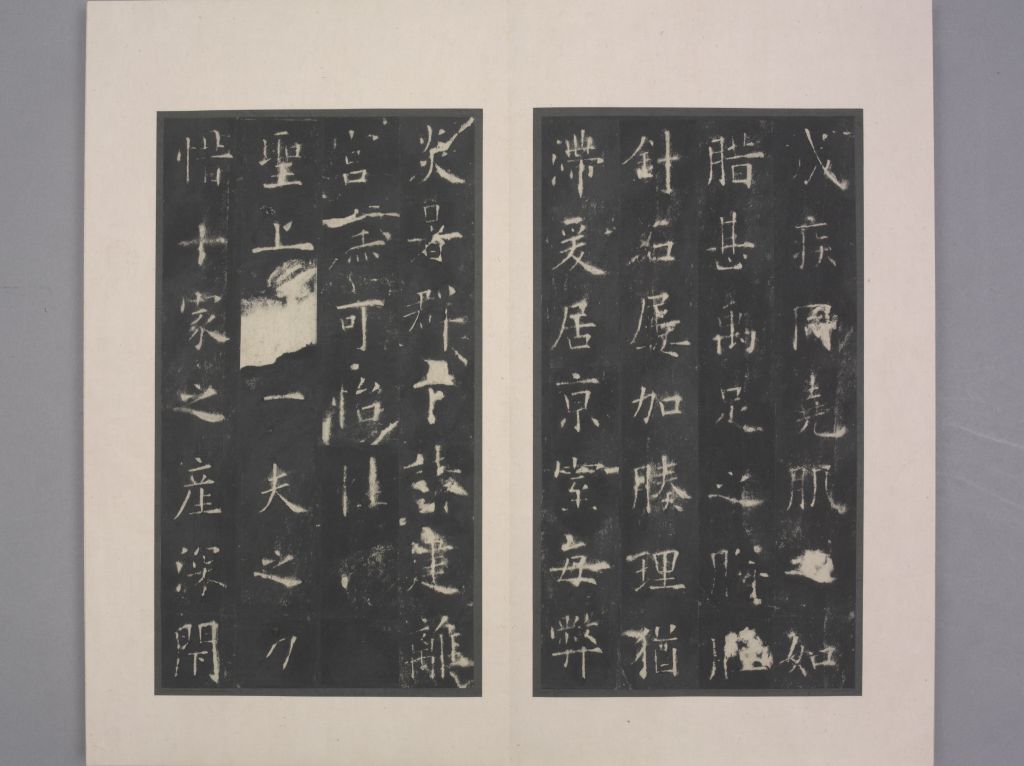 成疾同堯肌之如
腊甚禹足之胼胝
針石屢加腠理猶
滯爰居京室每弊
炎暑群下請建離
宮庶可怡性
聖上一夫之力
惜十家之産深閉